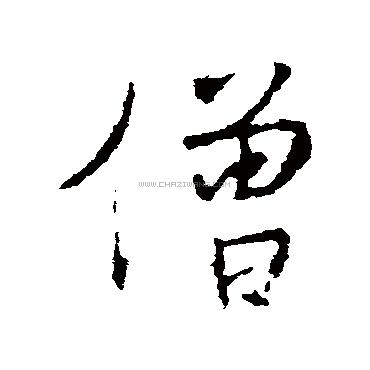 僧
WWW.CHAZIWANG.COM